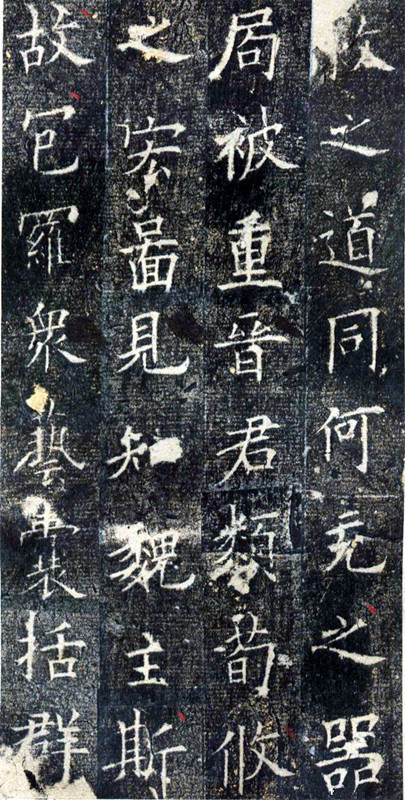 之道同何充之器
局被重晉君類荀攸
之宏圖見知魏主斯
故包羅眾藝囊括群